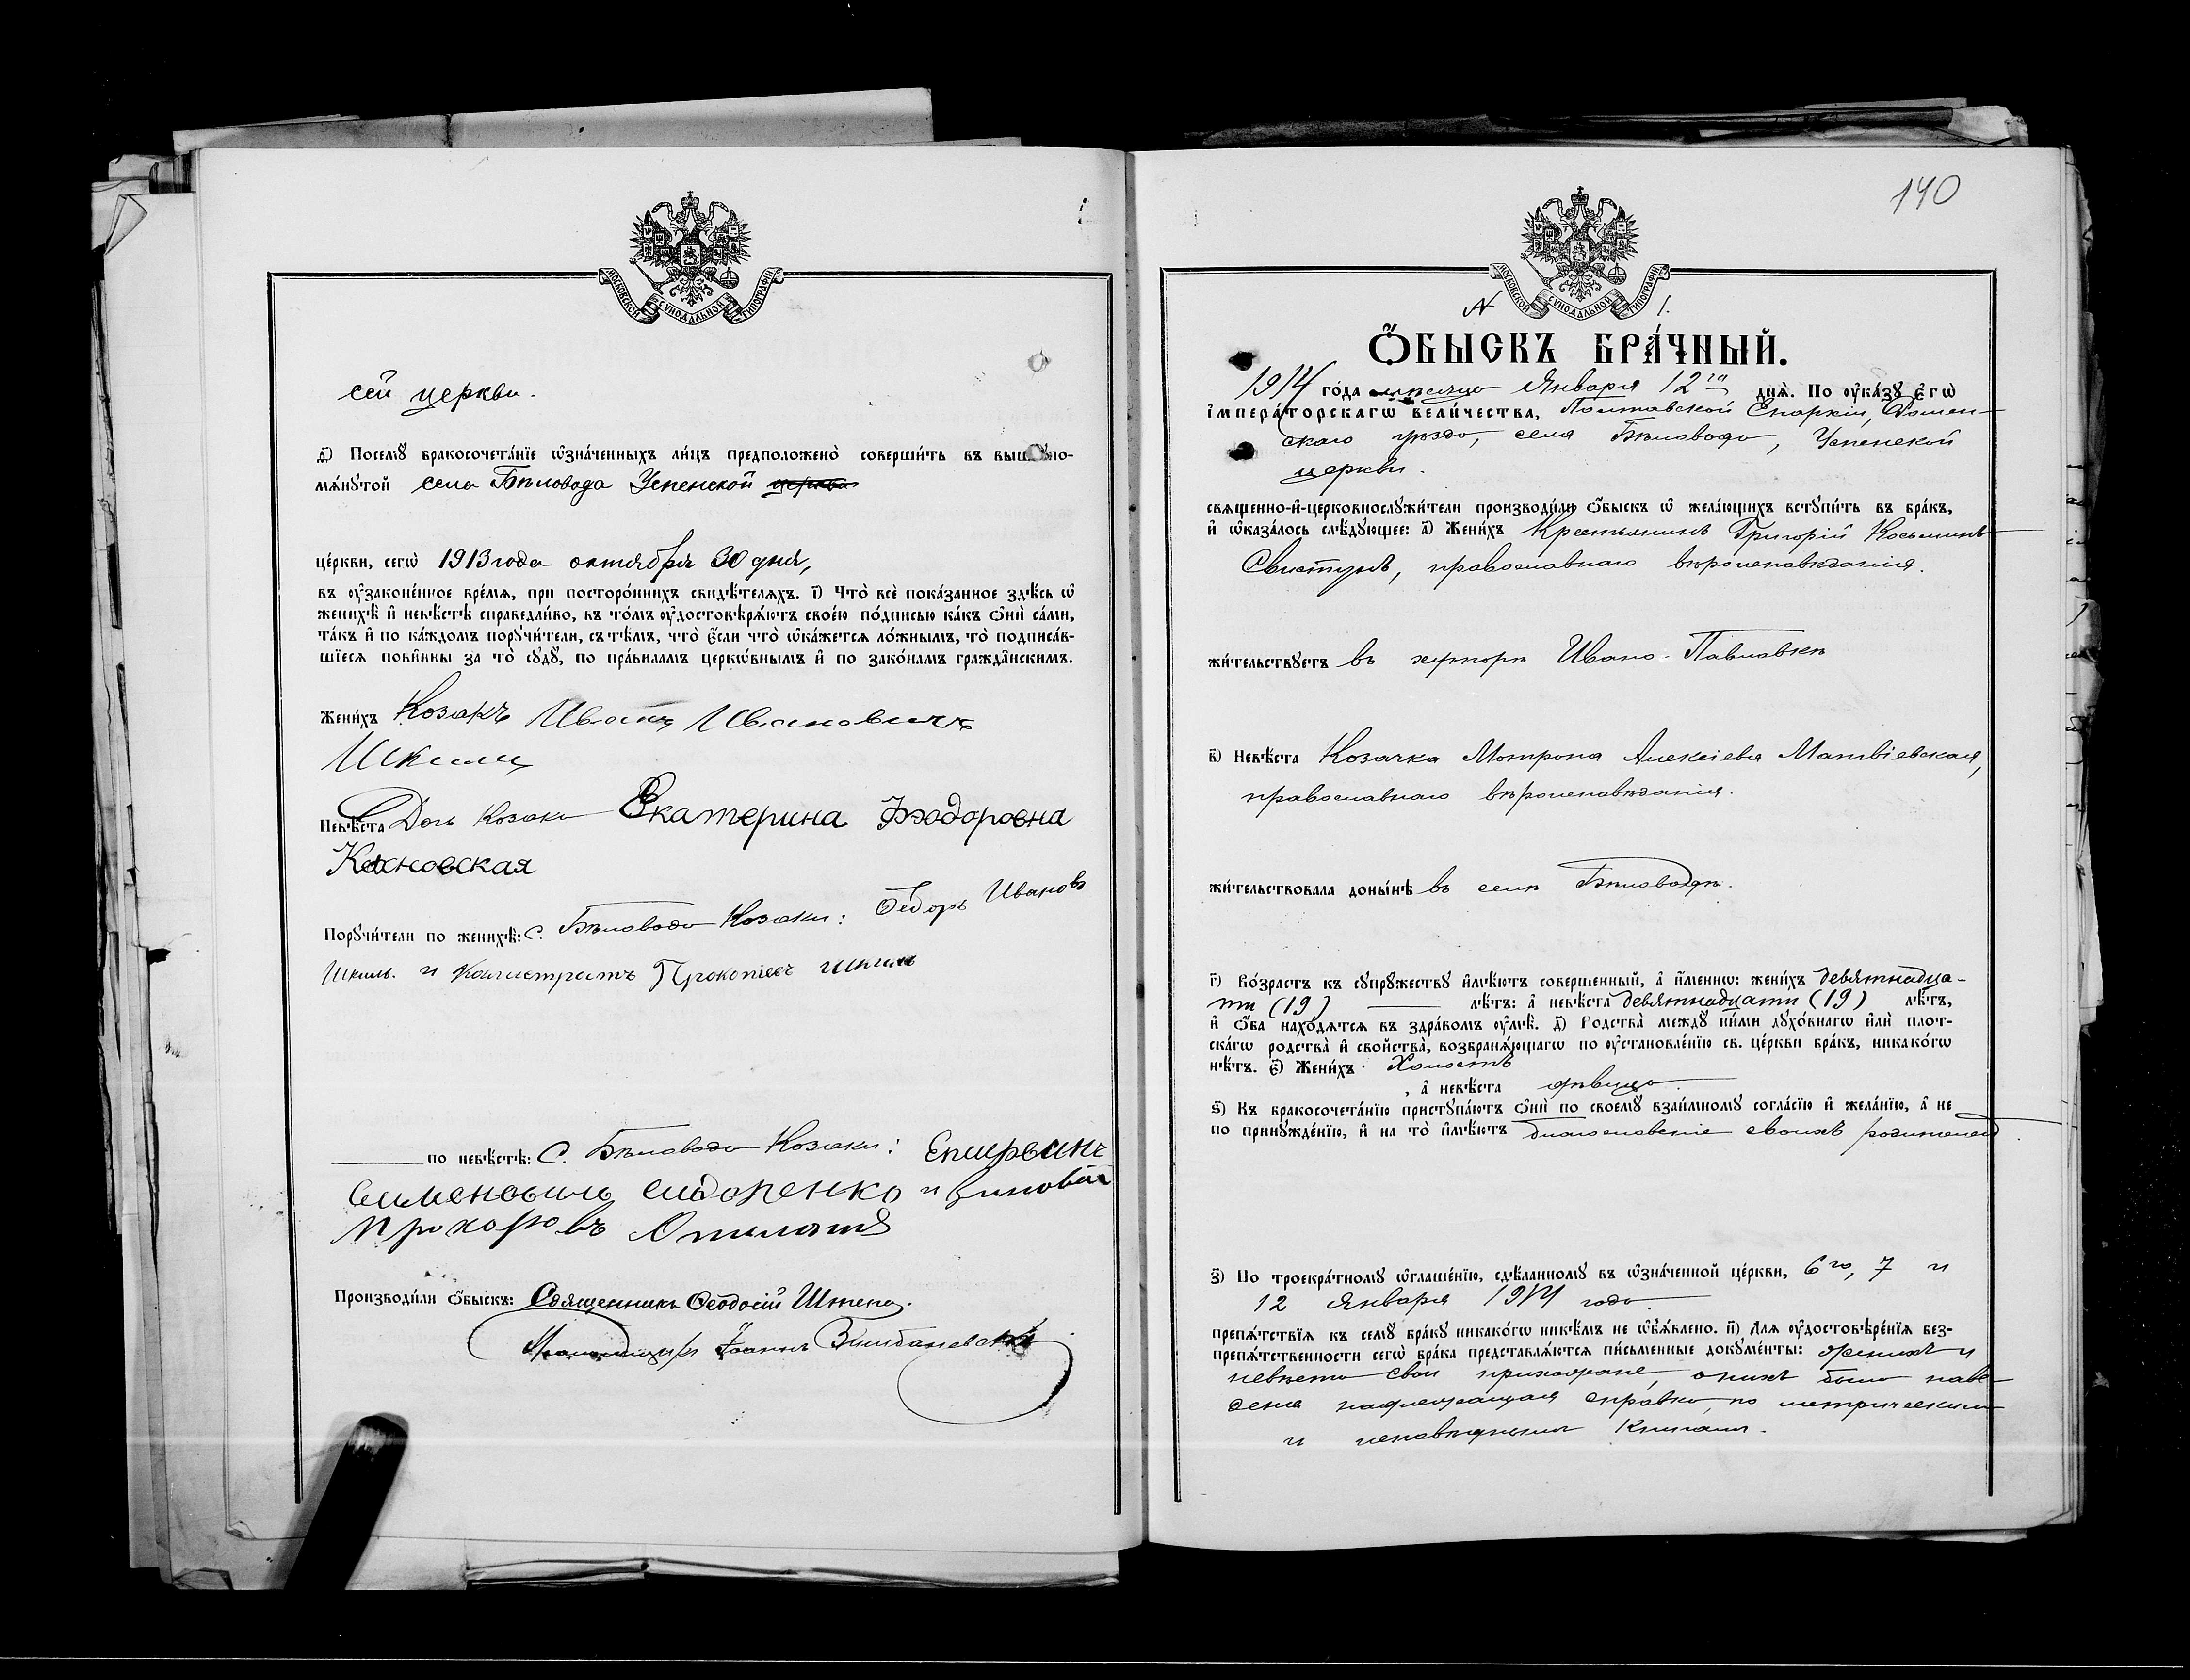 МОСКОВСКОЙ СѴНОДАЛЬНОЙ ТИПОГРАФІИ
сей церкви.
д҃і) Посемꙋ̀ бракосочета́нїе ѡ҆зна́ченныхъ ли́цъ предположенò соверши́ть въ выш но-
мѧ́нꙋтой села Бѣловода Успенской церкви
це́ркви, сегѡ̀ 1913 года октября 30 дня,
въ ᲂу҆зако́ненное вре́мѧ, при посторо́ннихъ свидѣ́телѧхъ. і҃) Чтò всѐ пока́занное здѣ́сь ѡ҆
женихѣ̀ и҆ невѣ́стѣ справедли́во, въ то́мъ ᲂу҆достовѣрѧ́ютъ свое́ю по́дписью ка́къ ѻ҆нѝ са́ми,
та́къ и҆ по ка́ждомъ порꙋчи́тели, съ тѣ́мъ, чтò є҆́сли чтò ѡ҆ка́жется ло́жнымъ, тò подписа́в-
шїесѧ пови́нны за тò сꙋдꙋ̀, по пра́виламъ церкѡ́внымъ и҆ по зако́намъ гражда́нскимъ.
Жени́хъ Козакъ Иванъ Ивановичъ
Шкиль
Невѣ́ста Дочь козака Екатерина Ѳеодоровна
Кохновская
Порꙋчи́тели по женихѣ̀: с. Бѣловода Козаки: Ѳедоръ Ивановъ
Шкиль. и Калистратъ Прокопіевъ Шкиль
по невѣ́стѣ: С. Бѣловода Козаки:
Сидоренко и Зиновій
Прохоровъ
Производи́ли ѻ҆́быскъ: Священникъ Ѳеодосій
Іоаннъ
140
МОСКОВСКОЙ СѴНОДАЛЬНОЙ ТИПОГРАФІИ
№ 1.
Ѻ҆́БЫСКЪ БРА́ЧНЫЙ.
1914 го́да мѣсяца Января 12го днѧ̀. По ᲂу҆ка́зꙋ є҆гѡ̀
і҆мпера́торскагѡ вели́чества, Полтавской Епархіи, Ромен-
скаго уѣзда, села Бѣловода, Успенской
церкви.
свѧщенно-и҆-церковнослꙋжи́тели производи́ли ѻ҆́быскъ ѡ҆ жела́ющихъ встꙋпи́ть въ бра́къ,
и҆ ѡ҆каза́лось слѣ́дꙋющее: а҃) Жени́хъ Крестьянинъ Григорій Косьминъ
Свистунъ, православнаго вѣроисповѣданія.
жи́тельствꙋетъ въ хуторѣ Ивано-Павловкѣ
в҃) Невѣ́ста Козачка Мотрона Алексіева Матвіевская,
православнаго вѣроисповѣданія.
жи́тельствовала доны́нѣ въ селѣ Бѣловодѣ.
г҃) Во́зрастъ къ сꙋпрꙋ́жествꙋ и҆мѣ́ютъ соверше́нный, а҆ и҆́меннѡ: жени́хъ девятнадца-
ти (19) лѣ́тъ: а҆ невѣ́ста девятнадцати (19) лѣ́тъ,
и҆ ѻ҆́ба нахо́дѧтсѧ въ здра́вомъ ᲂу҆мѣ̀. д҃) Родства̀ междꙋ̀ ни́ми дꙋхо́внагѡ и҆лѝ пло́т-
ска́гѡ родства̀ и҆ сво́йства̀, возбранѧ́ющагѡ по ᲂу҆становле́нїю св. це́ркви бра́къ, никако́гѡ
нѣ́тъ. є҃) Жени́хъ Холостъ
, а҆ невѣ́ста дѣвица.
ѕ҃) Къ бракосочета́нїю пристꙋпа́ютъ ѻ҆нѝ по своемꙋ̀ взаи́мномꙋ согла́сїю и҆ жела́нїю, а҆ не
по принꙋжде́нїю, и҆ на тò и҆мѣ́ютъ благословеніе своихъ родителей.
з҃) По троекра́тномꙋ ѡ҆глаше́нїю, сдѣ́ланномꙋ въ ѡ҆зна́ченной це́ркви, 6го, 7 и
12 Января 1914 года.
препѧ́тствїѧ къ семꙋ̀ бра́кꙋ никако́гѡ никѣ́мъ не ѡ҆б̾ѧ́влено. и҃) Длѧ ᲂу҆достовѣре́нїѧ без-
препѧ́тственности сегѡ̀ бра́ка представлѧ́ютсѧ пи́сьменные докꙋме́нты: женихъ и
невѣста свои прихожане, о нихъ была наве-
дена надлежащая справка по метрическимъ
и исповѣднымъ Книгамъ.